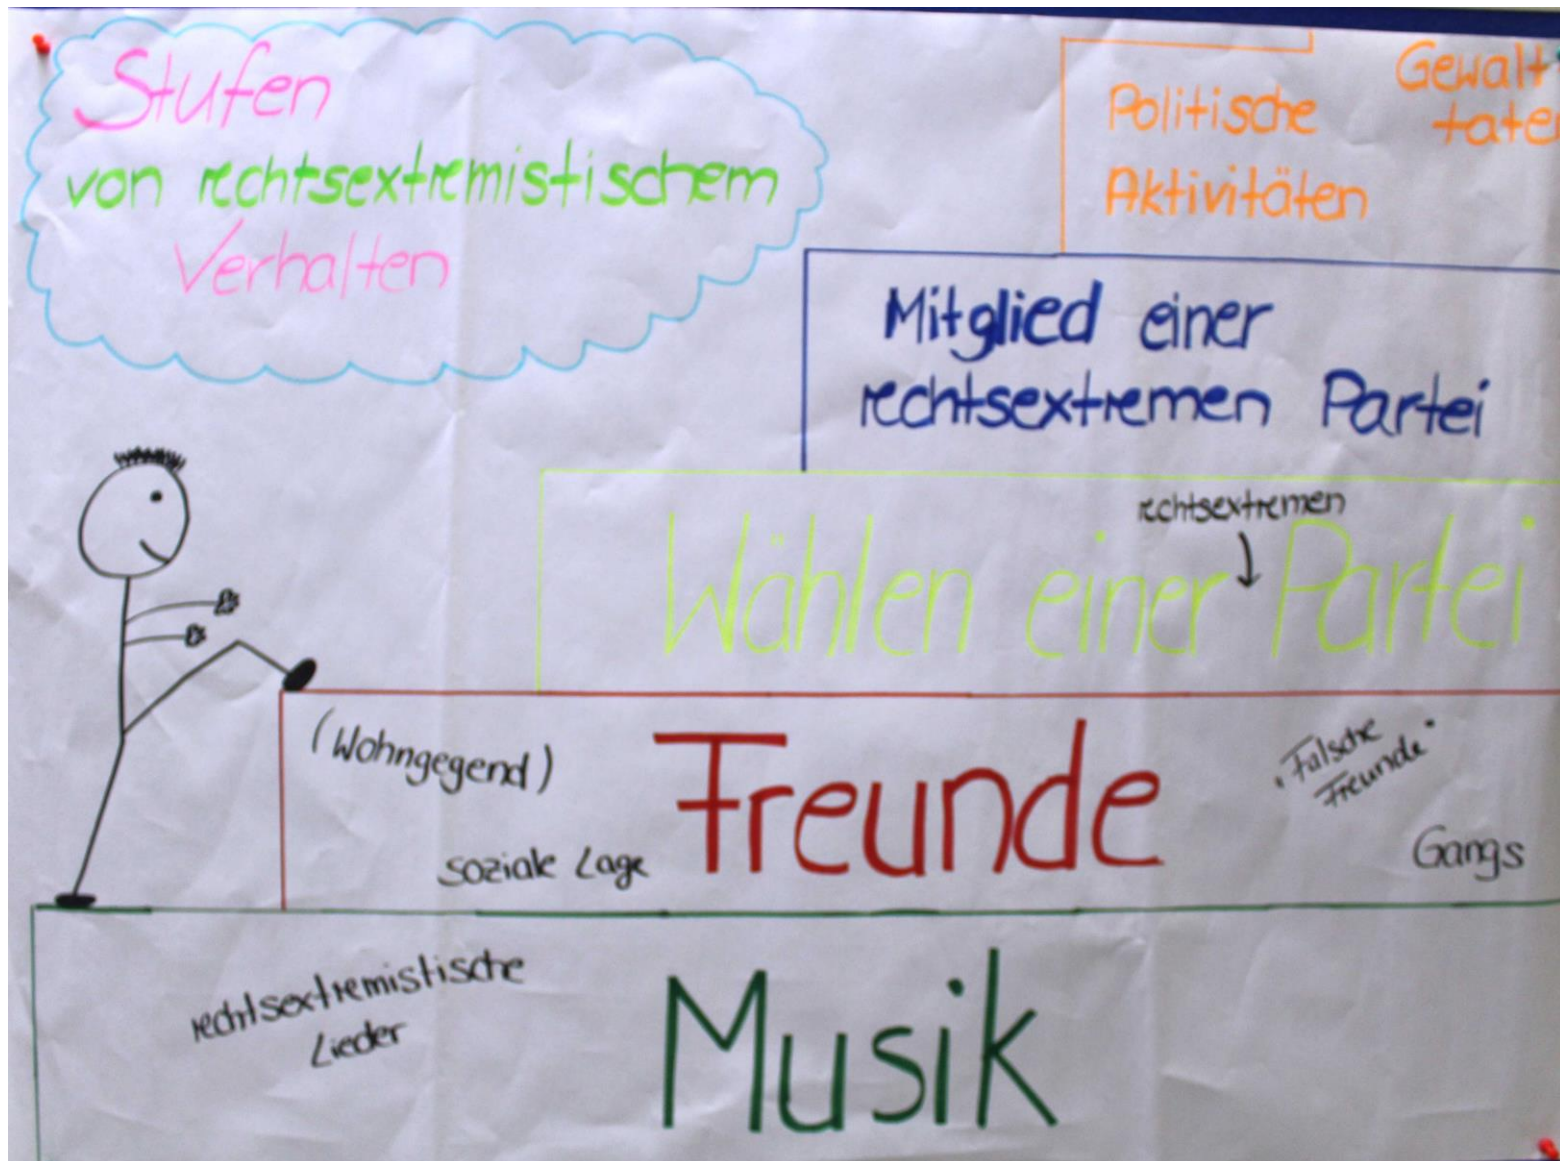 Stufen
von rechtsextremistischem
Verhalten
Gewalt
taten
Politische
Aktivitäten
Mitglied einer
rechtsextremen Partei
rechtsextremen
Wählen einer Partei
(Wohngegend)
Freunde
"Falsche
Freunde"
soziale Lage
Gangs
rechtsextremistische
Lieder
Musik